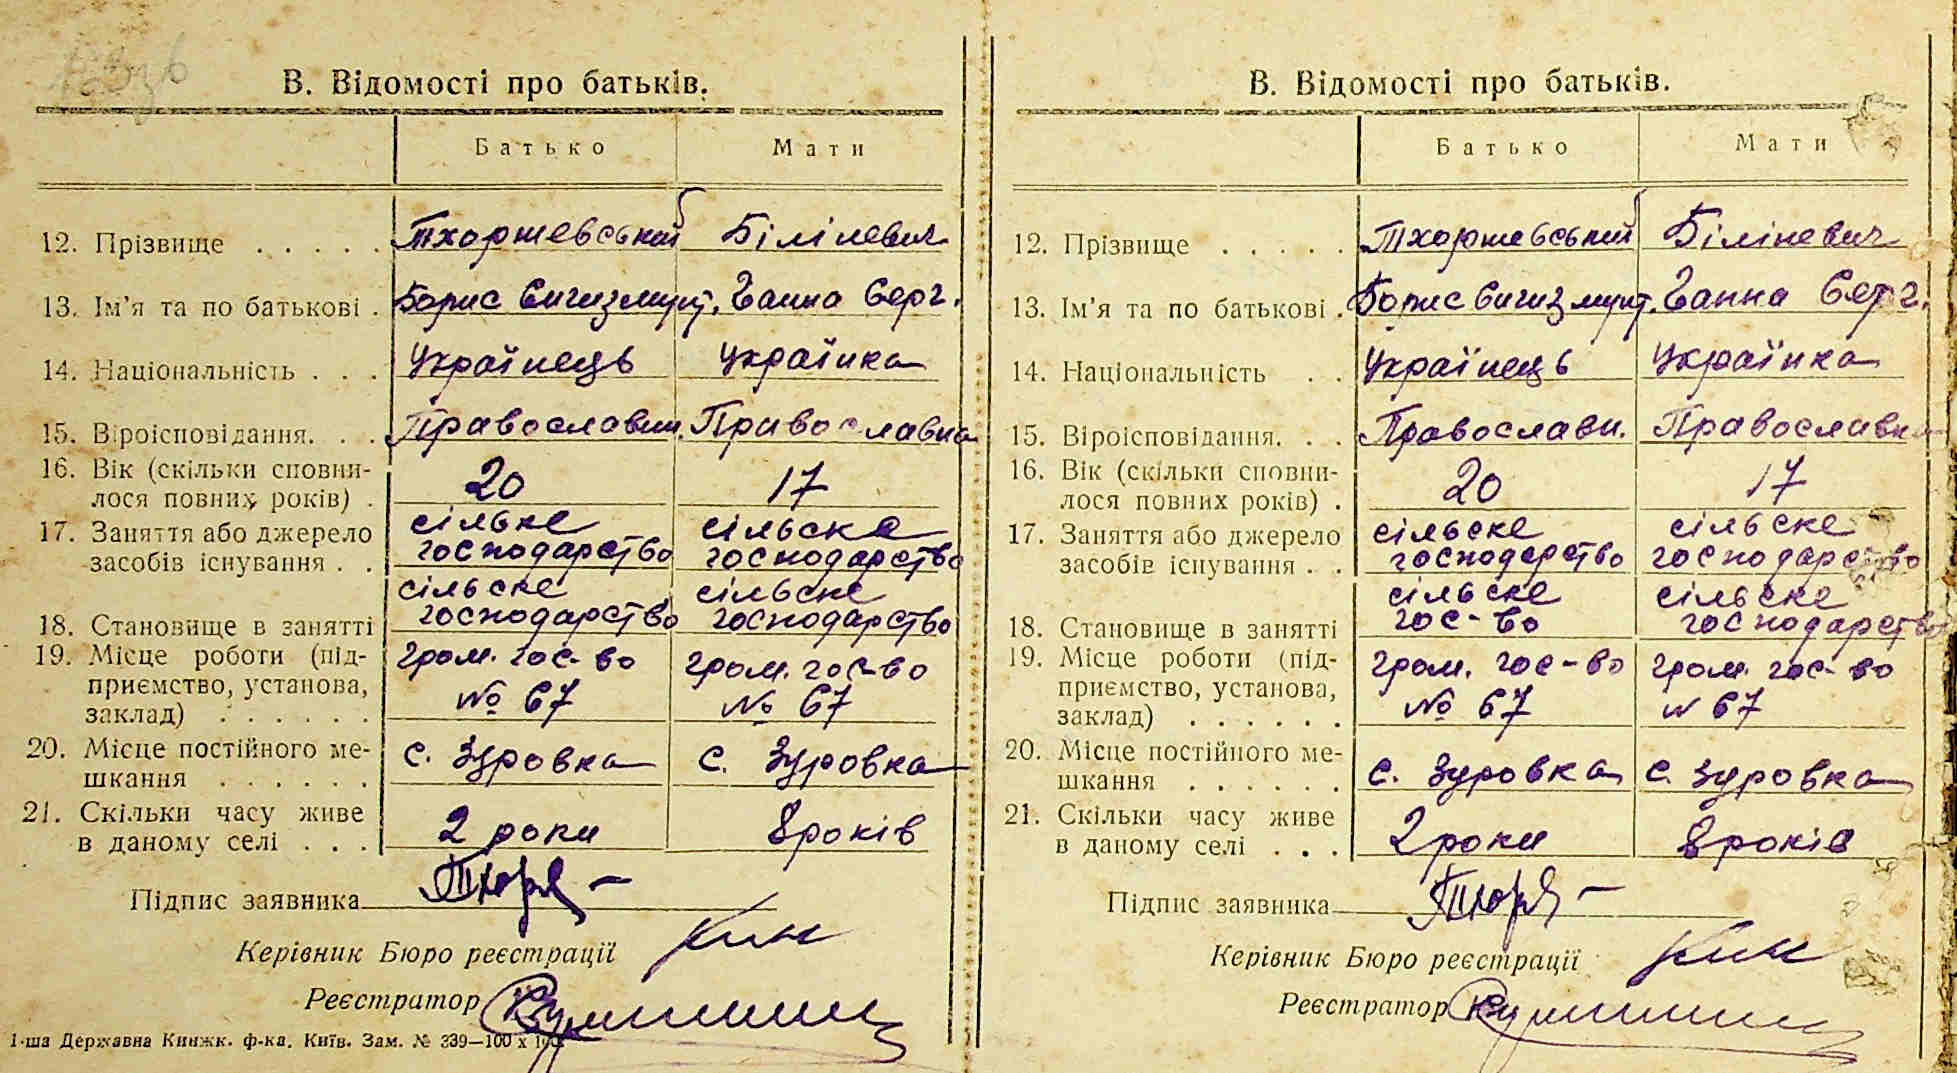 В. Відомості про батьків.
Батько Мати
12. Прізвище . . . . . Тхоржевський Білілевич
13. Ім'я та по батькові . Борис Сигизмунт. Ганна Серг.
14. Національність . . . Українець Українка
15. Віроісповідання. . . Православн. Православна
16. Вік (скільки сповни-
лося повних років) . 20 17
17. Заняття або джерело сільке сільске
засобів існування . . господарство господарство
сільске сільске
18. Становище в занятті господарство господарство
19. Місце роботи (під- гром. гос-во гром. гос-во
приємство, установа, № 67 № 67
заклад) . . . . . .
20. Місце постійного ме- с. Зуровка с. Зуровка
шкання . . . . . .
21. Скільки часу живе
в даному селі . . . 2 роки 8 років
Підпис заявника
Керівник Бюро реєстрації
Реєстратор
1-ша Державна Книжк. ф-ка. Київ. Зам. № 339—100 х
В. Відомості про батьків.
Батько Мати
12. Прізвище . . . . . Тхоржевський Біліневич
13. Ім'я та по батькові . Борис Сигизмунт. Ганна Серг.
14. Національність . . Українець Українка
15. Віроісповідання. . . Православн. Православна
16. Вік (скільки сповни-
лося повних років) . 20 17
17. Заняття або джерело сільске сільске
засобів існування . . господарство господарство
сільске сільске
18. Становище в занятті гос-во господарство
19. Місце роботи (під- гром. гос-во гром. гос-во
приємство, установа, № 67 N 67
заклад) . . . . . .
20. Місце постійного ме- с. Зуровка с. Зуровка
шкання . . . . . .
21. Скільки часу живе
в даному селі . . . 2 роки 8 років
Підпис заявника
Керівник Бюро реєстрації
Реєстратор